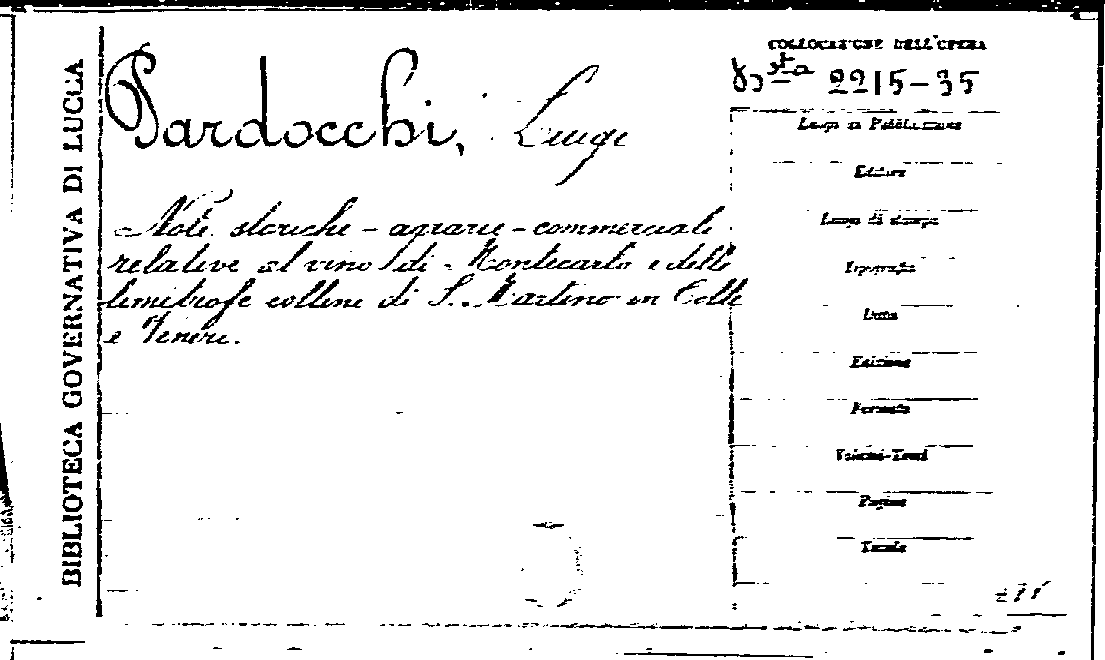 BIBLIOTECA GOVERNATIVA DI LUCCA
Pardocchi, Luigi
Note storiche - agrarie - commerciali
relative al vino di Montecarlo e delle
limitrofe colline di S. Martino in Colle
e Veneri.
COLLOCAZIONE DELL'OPERA
2215-35
Luogo di Pubblicazione
Editore
Luogo di stampa
Tipografia
Data
Edizione
Formato
Volumi-Tomi
Pagine
Tavole